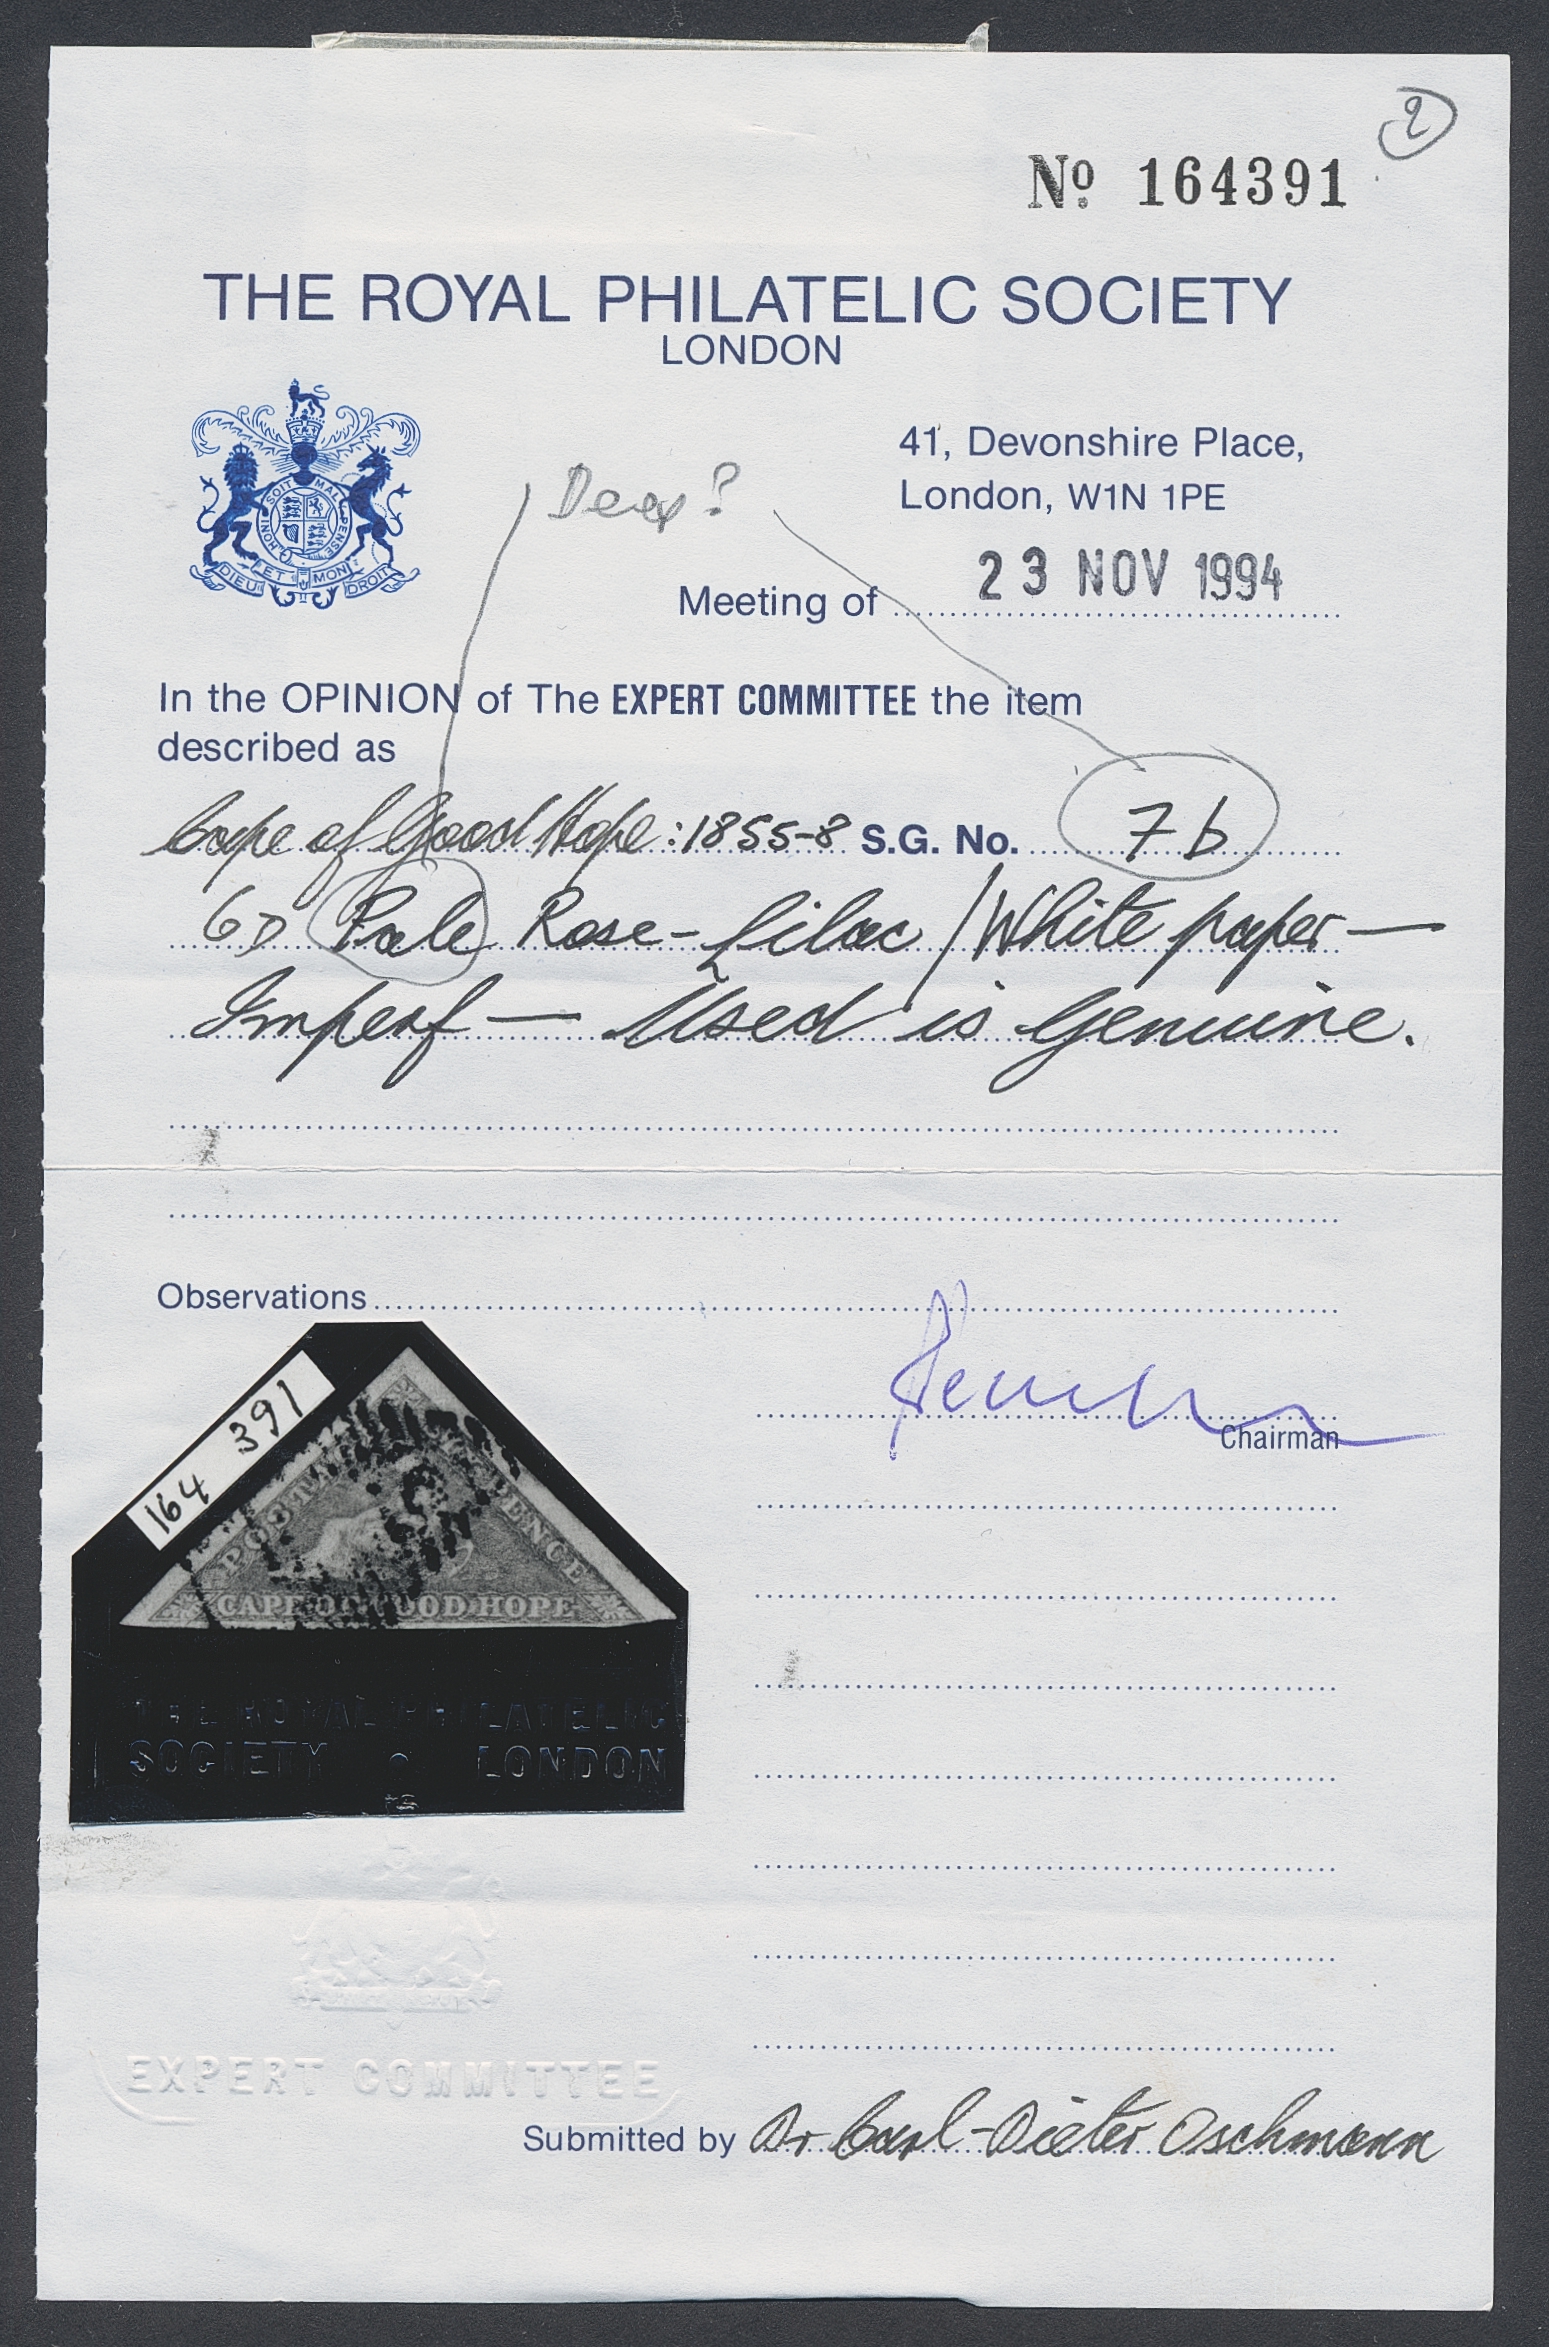 2
No 164391
THE ROYAL PHILATELIC SOCIETY
LONDON
HONI SOIT MAL PENSE
DIEU ET MON DROIT
41, Devonshire Place,
London, W1N 1PE
Deep?
Meeting of 23 NOV 1994
In the OPINION of The EXPERT COMMITTEE the item
described as
Cape of Good Hope: 1855-8 S.G. No. 7b
6D Pale Rose-Lilac / White paper —
Imperf — Used is Genuine.
Observations
164 391
POSTAGE PENCE
CAPE OF GOOD HOPE
Chairman
THE ROYAL PHILATELIC
SOCIETY LONDON
EXPERT COMMITTEE
Submitted by Dr Carl-Dieter Oschmann